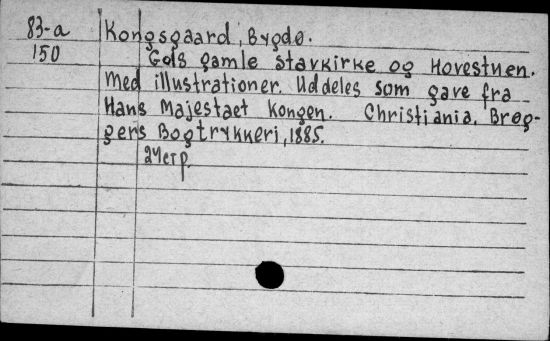 83-a Kongsgaard, Bygdø.
150 Gols gamle stavkirke og Hovestuen.
Med illustrationer. Uddeles som gave fra
Hans Majestaet Kongen. Christiania, Brøg-
gers Bogtrykkeri, 1885.
24 стр.